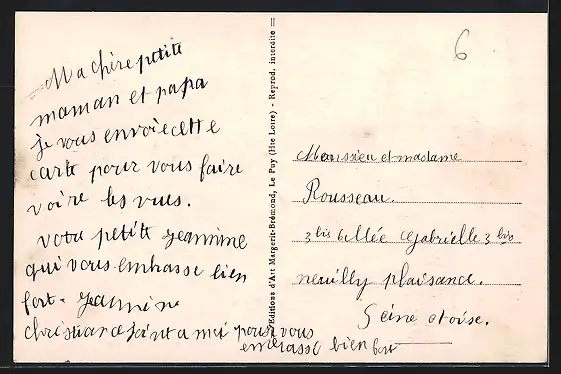 Ma chère petite
maman et papa
je vous envoie cette
carte pour vous faire
voire les vues.
votre petite jeannine
qui vous embrasse bien
fort. Jeannine
christiane joint a moi pour vous
embrasse bien fort
Editions d'Art Margerit-Brémond, Le Puy (Hte Loire) - Reprod. interdite =
6
Monssieu et madame
Rousseau.
3 bis Allée Gabrielle 3 bis
neuilly plaisance.
Seine et oise.